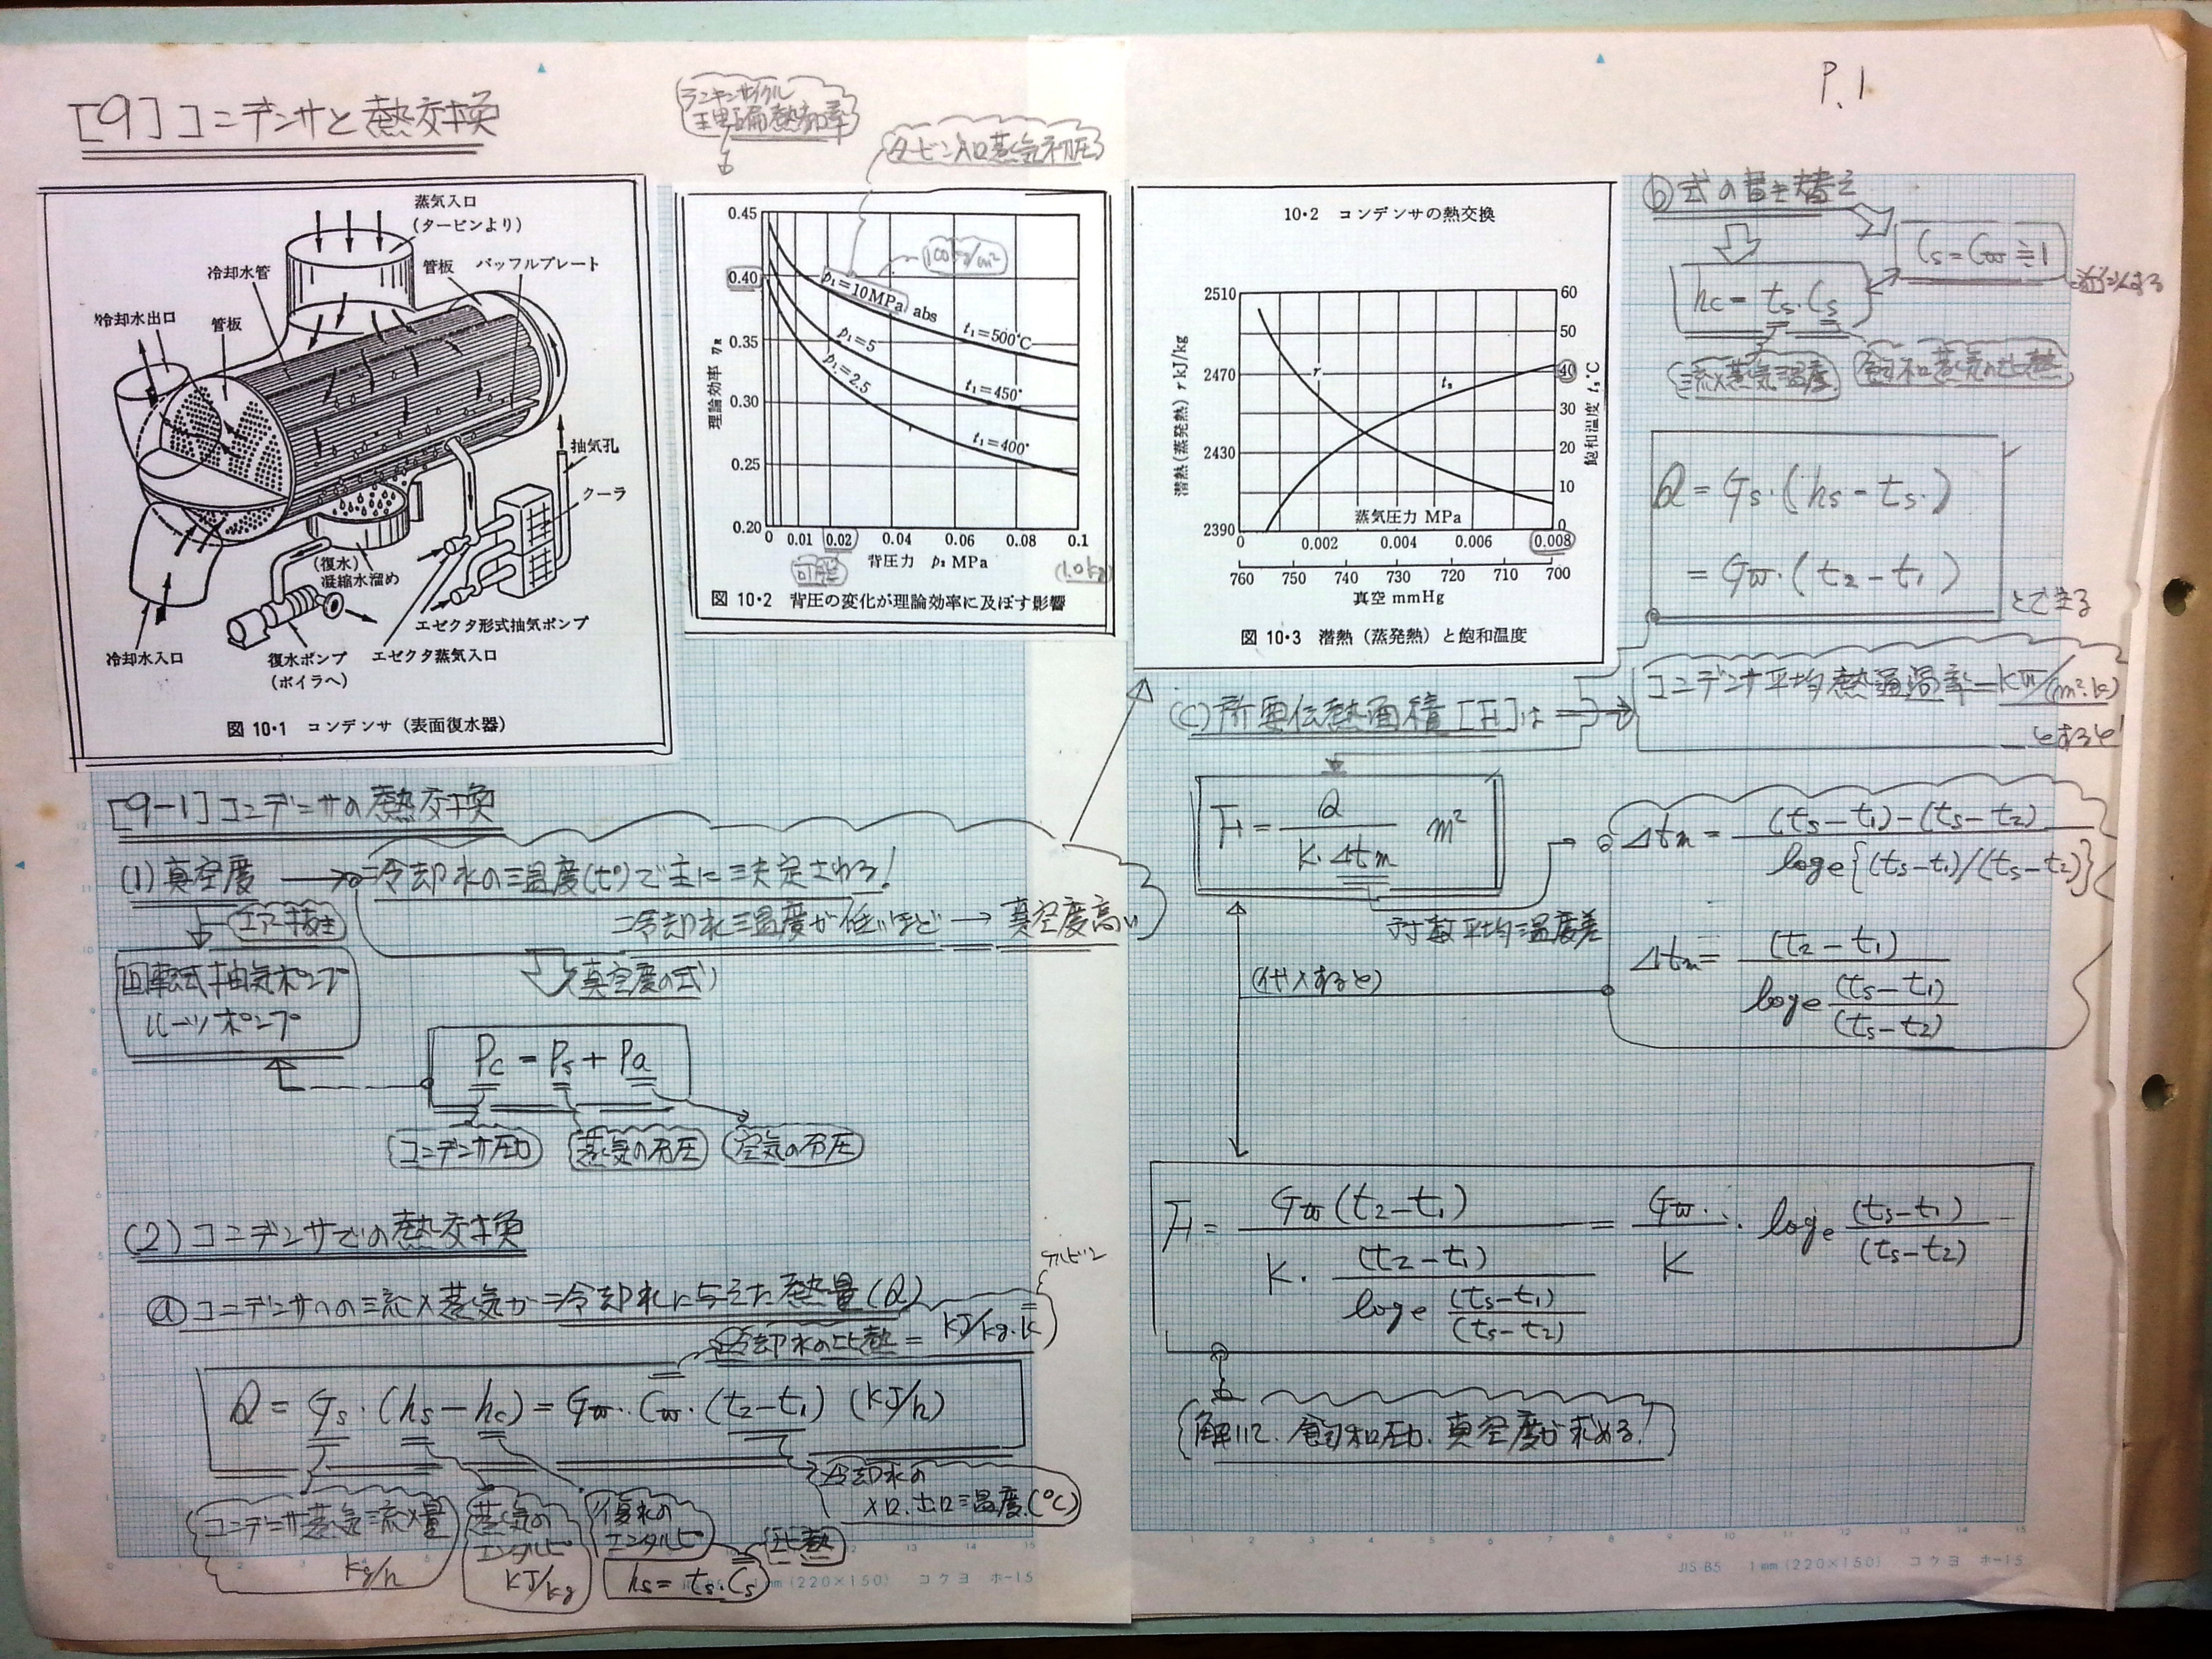 P.1
[9]コンデンサと熱交換
ランキンサイクル
理論熱効率
タービン入口蒸気初圧
蒸気入口
(タービンより)
冷却水管
管板
バッフルプレート
冷却水出口
管板
抽気孔
クーラ
(復水)
凝縮水溜め
エゼクタ形式抽気ポンプ
冷却水入口
復水ポンプ
(ボイラへ)
エゼクタ蒸気入口
図 10・1 コンデンサ(表面復水器)
0.45
0.40
0.35
0.30
0.25
0.20
理論効率 ηR
p₁=10MPa abs
t₁=500℃
p₁=5
t₁=450°
p₁=2.5
t₁=400°
0 0.01 0.02 0.04 0.06 0.08 0.1
背圧力 p₂ MPa
図 10・2 背圧の変化が理論効率に及ぼす影響
10・2 コンデンサの熱交換
2510
2470
2430
2390
潜熱(蒸発熱) r kJ/kg
r
tₛ
60
50
40
30
20
10
0
飽和温度 tₛ℃
蒸気圧力 MPa
0 0.002 0.004 0.006 0.008
760 750 740 730 720 710 700
真空 mmHg
図 10・3 潜熱(蒸発熱)と飽和温度
[9-1]コンデンサの熱交換
(1)真空度 → 冷却水の温度(t°)で主に決定される!
冷却水温度が低いほど → 真空度高い
エアー抜き
回転式抽気ポンプ
ルーツポンプ
真空度の式
Pc = Ps + Pa
コンデンサ圧力
蒸気の分圧
空気の分圧
(2)コンデンサでの熱交換
ⓐコンデンサへの流入蒸気が冷却水に与えた熱量(Q)
ケルビン
冷却水の比熱 = kJ/kg・k
Q = Gs・(hs-hc) = Gw・Cw・(t₂-t₁) (kJ/h)
コンデンサ蒸気流入量
kg/h
蒸気の
エンタルピ
kJ/kg
復水の
エンタルピ
hs = ts・Cs
比熱
冷却水の
入口、出口温度(℃)
ⓑ式の書き替え
Cs = Cw ≒ 1
hc = ts・Cs
流入蒸気温度
飽和蒸気の比熱
Q = Gs・(hs-ts・)
= Gw・(t₂-t₁)
とできる
(c)所要伝熱面積[F]は
コンデンサ平均熱通過率=kw/(m²・k)
とすると
F = Q / K・Δtm m²
対数平均温度差
Δtm = (ts-t₁)-(ts-t₂) / loge{(ts-t₁)/(ts-t₂)}
Δtm = (t₂-t₁) / loge (ts-t₁)/(ts-t₂)
(代入すると)
F = Gw(t₂-t₁) / K・(t₂-t₁)/loge (ts-t₁)/(ts-t₂) = Gw・/K・loge (ts-t₁)/(ts-t₂)
解いて、飽和圧力、真空度が求める!
JIS B5 1mm(220×150) コクヨ ホ-15
1mm(220×150) コクヨ ホ-15